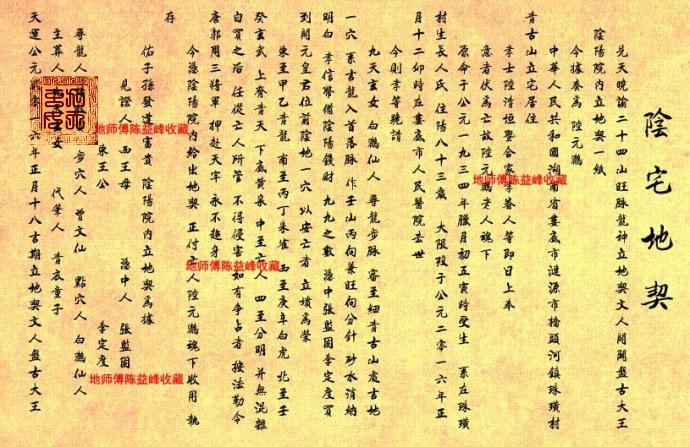 陰宅地契
兌天曉諭二十四山旺脉龍神立地契文人開開盤古大王
陰陽院內立地契一紙
今據奏為 陸元鵬
中華人民共和國湖南省婁底市漣源市橋頭河鎮珠璜村
青古山立宅居住
孝士陸清恒暨合家孝眷人等即日上奉
意者伏為亡故陸元鵬老人魂下
原命于公元一九三四年臘月初五寅時受生 系在珠璜
村生長人氏 住陽八十三歲 大限歿于公元二零一六年正
月十二卯時在婁底市人民醫院去世
今則孝等虔請
九天玄女 白鶴仙人 尊龍步脉 審至細青古山處吉地
一穴 系玄龍入首落脉 作壬山丙向兼旺向分針 砂水消納
明白 孝信幣備陰陽錢財 九九之數 憑中張堅固李定度買
到開元皇君位前陰地一穴 以安亡者 立墳為塋
東至甲乙青龍 南至丙丁朱雀 西至庚辛白虎 北至壬
癸玄武 上齊青天 下底黃泉 中至亡人 四至分明 并無混雜
自買之后 任從亡人所管 不得侵害 如有爭占者 按法勒令
唐郭周三將軍 押赴天牢 永不超身
今憑陰陽院內給出地契 正付亡人陸元鵬魂下收用 執
存
佑子孫發達富貴 陰陽院內立地契為據
見證人 西王母 憑中人 張堅固
東王公 李定度
尊龍人 步穴人 曾文仙 點穴人 白鶴仙人
主葬人 代筆人 青衣童子
天運公元二零一六年正月十八吉期立地契文人盤古大王
地师傅陈益峰收藏
地师傅陈益峰收藏
地师傅陈益峰收藏
地师傅陈益峰收藏